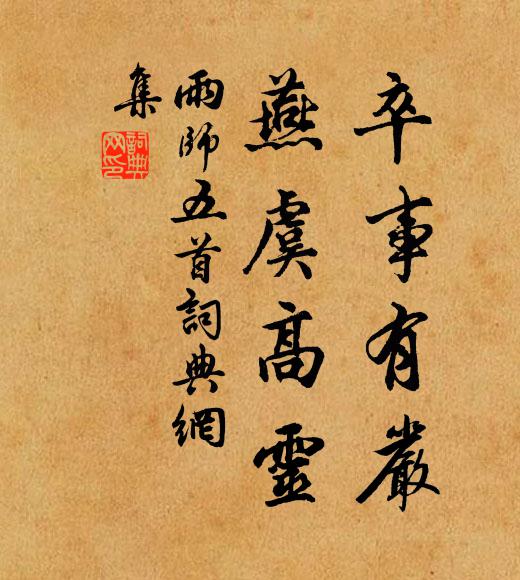 卒事有嚴
燕虞高靈
雨師五首詞典網
集
詞典
网印